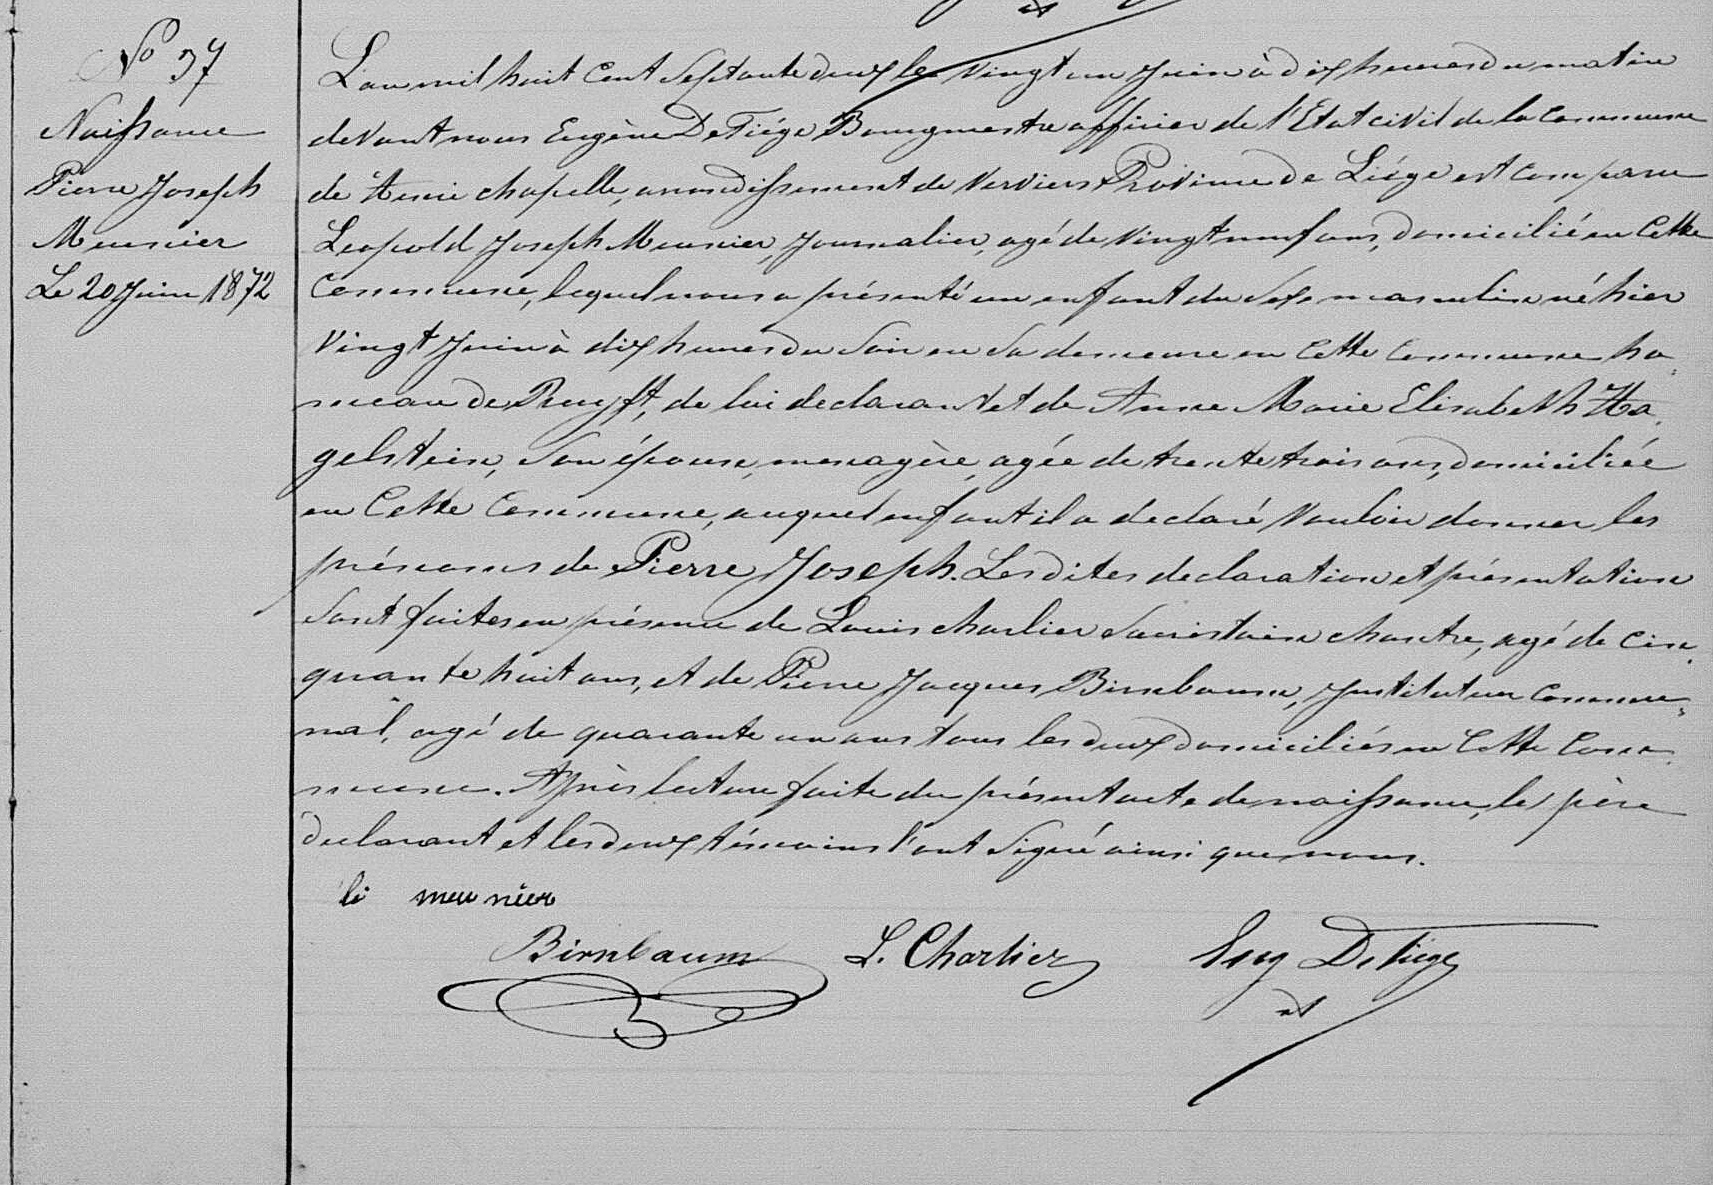 No 37
Naissance
Pierre Joseph
Meunier
Le 20 Juin 1872
L'an mil huit Cent Septante deux le vingt un Juin à dix heures du matin
devant nous Eugène DeTiége Bourgmestre officier de l'Etat civil de la Commune
de Henri chapelle, arrondissement de Verviers Province de Liége est comparu
Leopold Joseph Meunier, Journalier, agé de vingt neuf ans, domicilié en Cette
Commune, lequel nous a présenté un enfant du Sexe masculin né hier
vingt Juin à dix heures du Soir en Sa demeure en Cette Commune ha-
meau de Ruyff, de lui declarant et de Anne Marie Elisabeth Ha-
gelstein, Son épouse, menagère, agée de trente trois ans, domiciliée
en Cette Commune, auquel enfant il a declaré Vouloir donner les
prénoms de Pierre Joseph. Les dites declaration et présentation
Sont faites en présence de Louis Charlier Sacristain chantre, agé de Cin-
quante huit ans, et de Pierre Jacques Birnbaum, Instituteur Commu-
nal, agé de quarante un ans tous les deux domiciliés en Cette Com-
mune. Après lecture faite du présent acte de naissance, le père
declarant et les deux témoins l'ont Signé ainsi que nous.
li meunier
Birnbaum L. Charlier Eug DeTiége